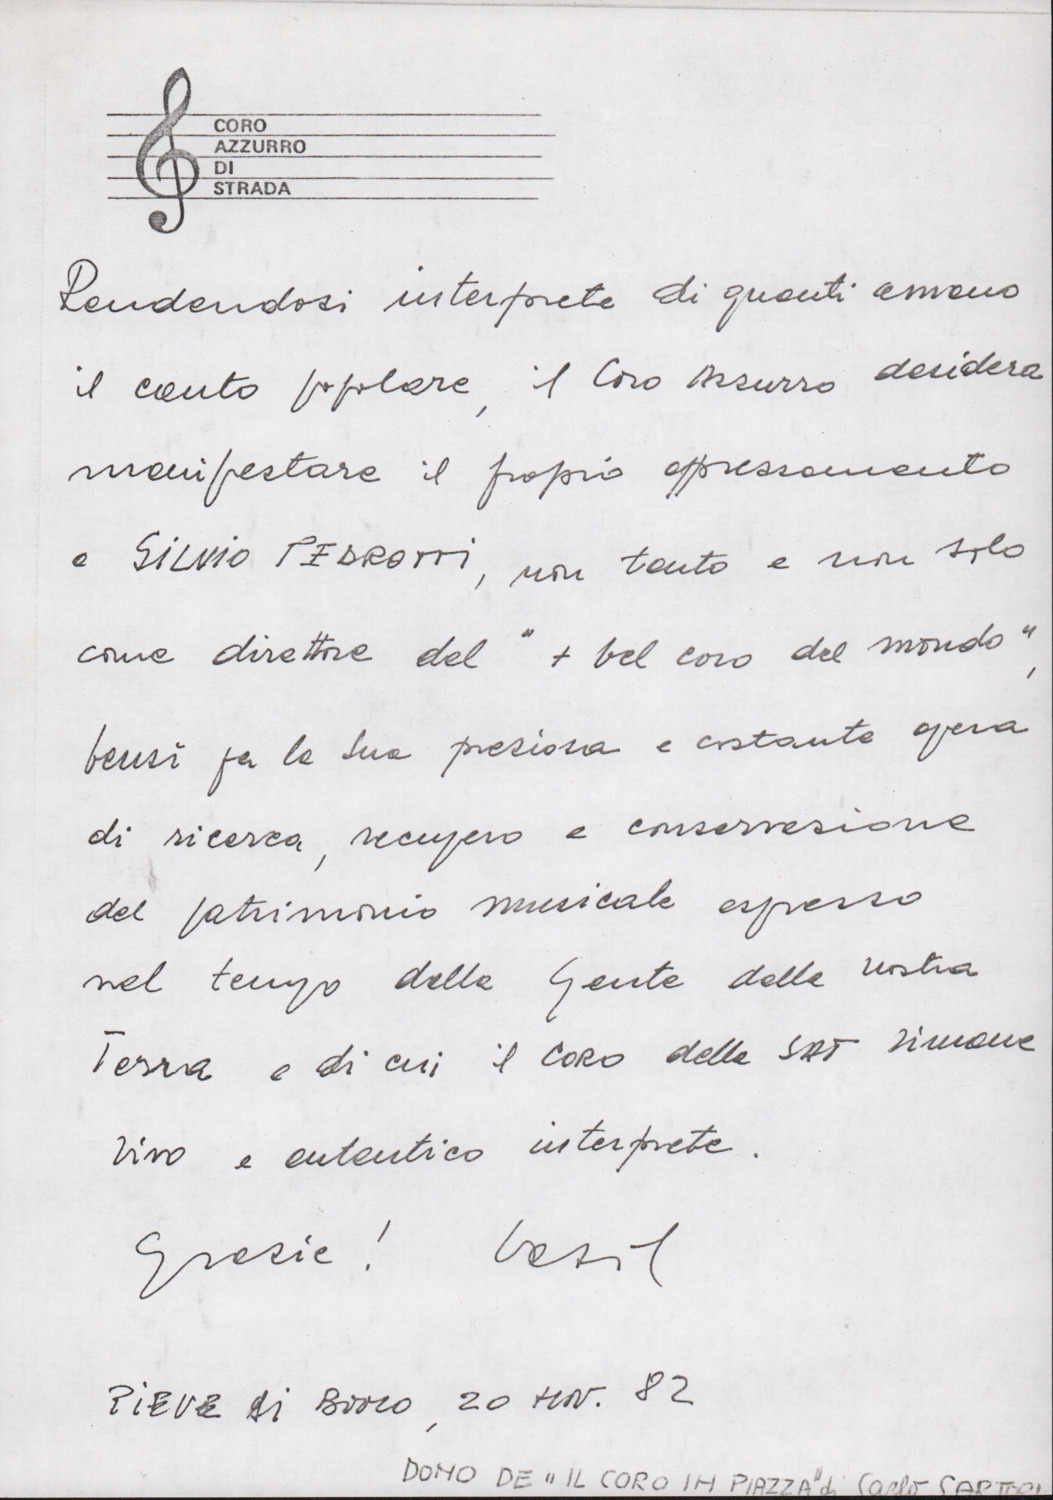 CORO
AZZURRO
DI
STRADA
Rendendosi interprete di quanti amano
il canto popolare, il Coro Azzurro desidera
manifestare il proprio apprezzamento
a SILVIO PEDROTTI, non tanto e non solo
come direttore del " + bel coro del mondo",
bensì per la sua preziosa e costante opera
di ricerca, recupero e conservazione
del patrimonio musicale espresso
nel tempo dalla Gente della nostra
Terra e di cui il CORO della SAT rimane
vivo e autentico interprete.
Grazie!
PIEVE di BONO, 20 NOV. 82
DONO DE "IL CORO IN PIAZZA" di Carlo SARTORI